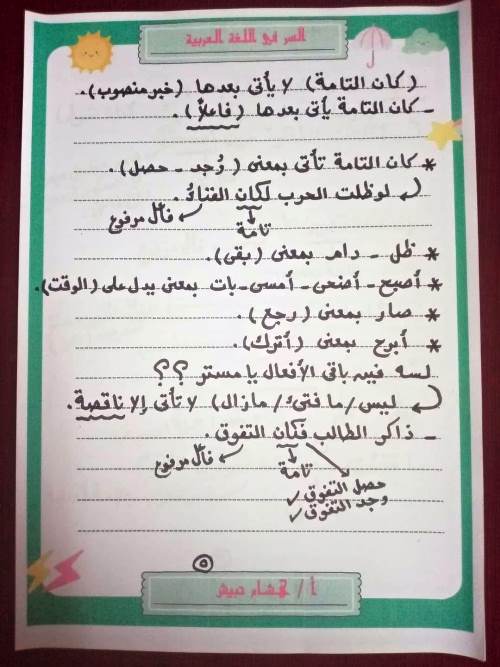 السر في اللغة العربية
(كان التامة) لا يأتى بعدها (خبر منصوب).
- كان التامة يأتى بعدها (فاعلاً).
* كان التامة تأتى بمعنى (وُجد - حصل).
لو ظلت الحرب لكان الفناءُ.
تامة
فاعل مرفوع
* ظل - دام بمعنى (بقى).
* أصبح - أضحى - أمسى - بات بمعنى يدل على (الوقت).
* صار بمعنى (رجع).
* أبرح بمعنى (أترك).
لسه فيه باقى الأفعال يا مستر ؟؟
ليس / ما فتئ / مازال) لا تأتى إلا ناقصة.
- ذاكر الطالب فكان التفوق.
تامة
فاعل مرفوع
حصل التفوق ✓
وجد التفوق ✓
٥
أ / هشام حبيش